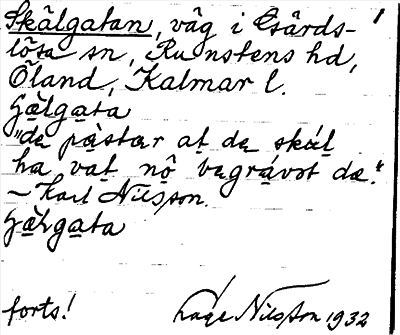 Skälgatan, väg i Gärds-
lösa sn, Runstens hd,
Öland, Kalmar l.
"de påstar at de skál
ha vat nô begrávst dæ."
– Karl Nilsson.
forts! Lage Nilsson 1932